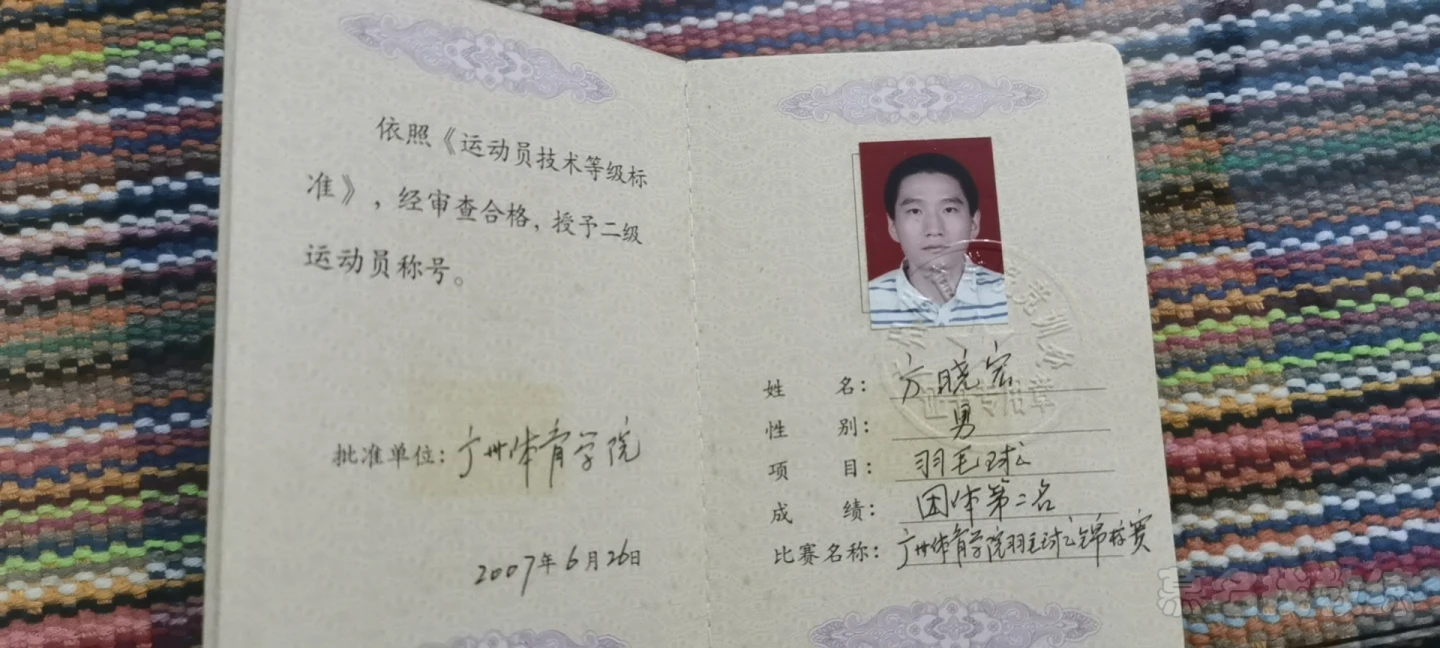 依照《运动员技术等级标
准》，经审查合格，授予二级
运动员称号。
批准单位：广州体育学院
2007年6月26日
姓 名：方晓宏
性 别：男
项 目：羽毛球
成 绩：团体第二名
比赛名称：广州体育学院羽毛球锦标赛
证书专用章